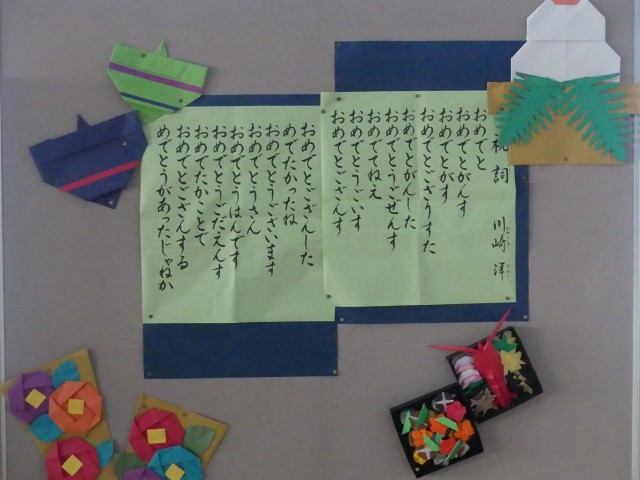 祝詞　川崎洋
おめでと
おめでとがんす
おめでとがす
おめでとござりすた
おめでとがんした
おめでとうごぜんす
おめでてねえ
おめでとうごいす
おめでとごぎんす
おめでとござんした
めでたかったね
おめでとうございます
おめでとうさん
おめでとうはんです
おめでとうごだえんす
おめでたかことで
おめでとございんする
めでとうがあったじゃねか